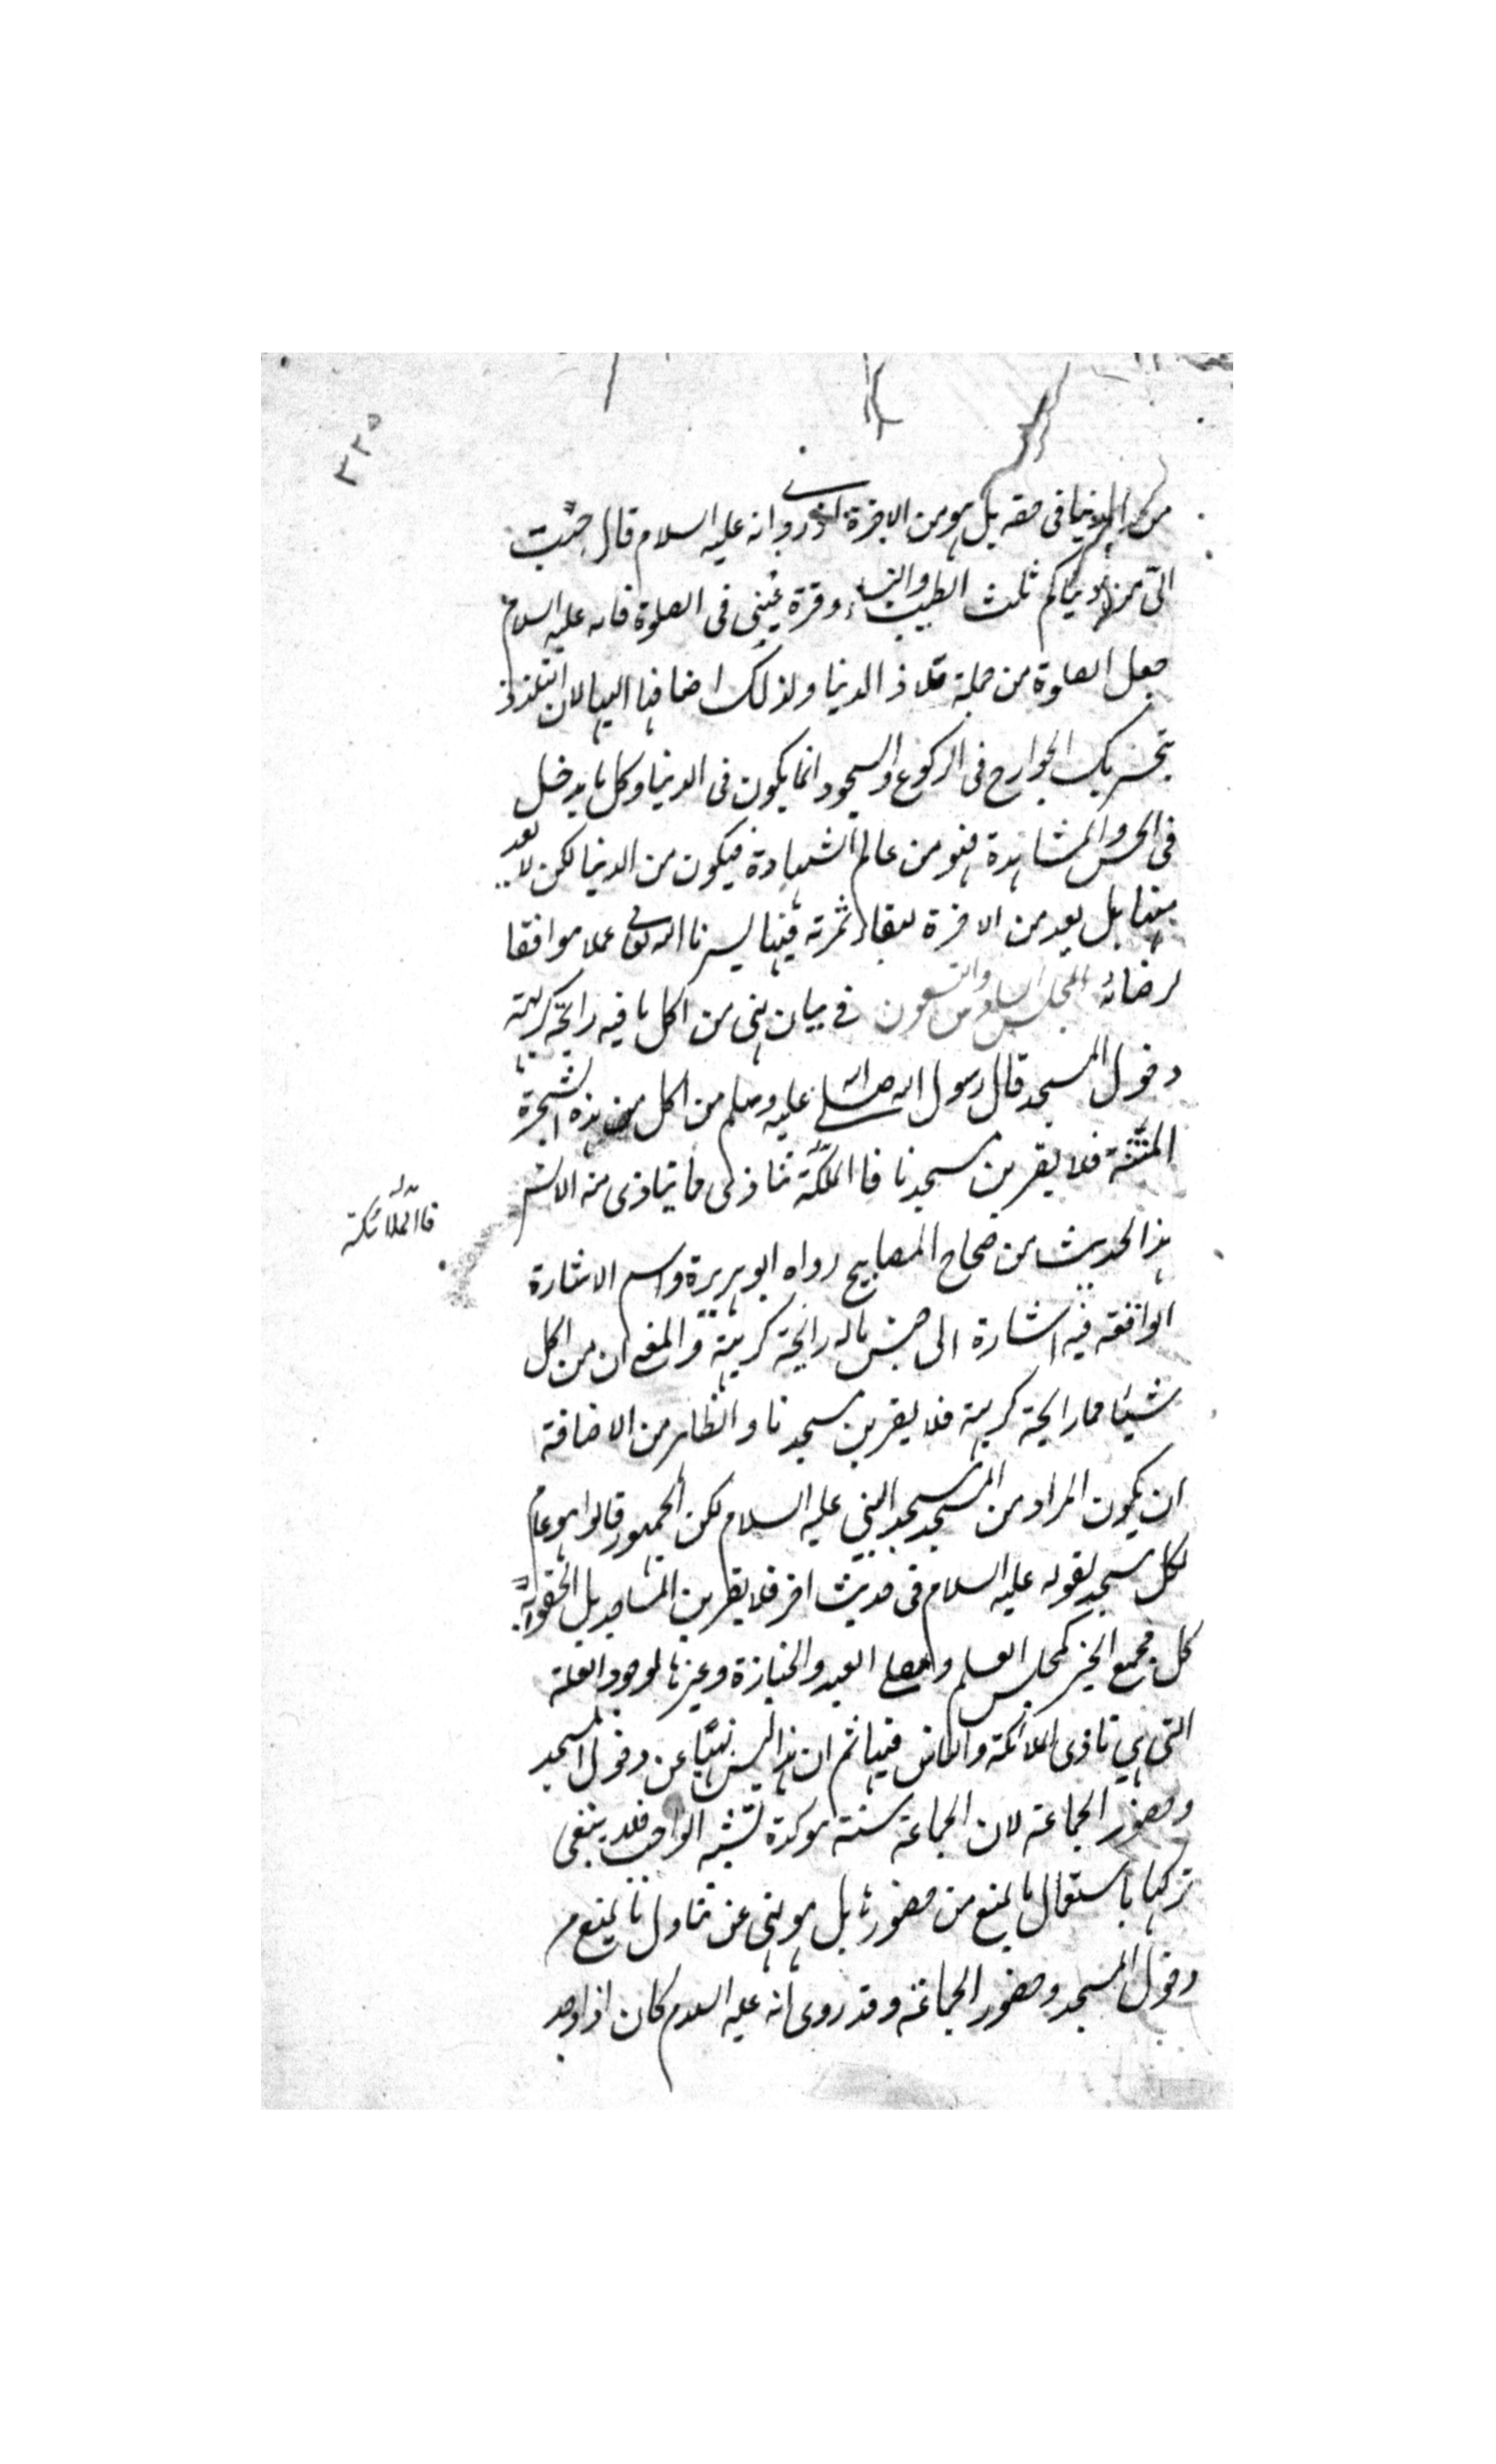 ٣٣٥
من الدنيا فى حقه بل هو من الاخرة اذ روى انه عليه السلام قال حبّب
الىّ من دنياكم ثلث الطيب والنساء وقرة عينى فى الصلوة فانه عليه السلام
جعل الصلوة من جملة ملاذ الدنيا ولذلك اضافها اليها لان التلذذ
بتحريك الجوارح فى الركوع والسجود انما يكون فى الدنيا وكل ما يدخل
فى الحس والمشاهدة فهو من عالم الشهادة فيكون من الدنيا لكن لا يعد
منها بل يعد من الاخرة لبقاء ثمرته فيها يسرنا الله تعالى عملا موافقا
لرضائه المجلس والتسعون فى بيان نهى من اكل ما فيه رائحة كريهة
دخول المسجد قال رسول الله صلى الله عليه وسلم من اكل من هذه الشجرة
المنتنة فلا يقربن مسجدنا فا الملئكة تتاذى ما يتاذى منه الانس
فان الملائكة
هذا الحديث من صحاح المصابيح رواه ابو هريرة واسم الاشارة
الواقعة فيه اشارة الى جنس ماله رائحة كريهة والمعنى ان من اكل
شيئا مما رايحة كريهة فلا يقربن مسجدنا والظاهر من الاضافة
ان يكون المراد من المسجد مسجد النبى عليه السلام لكن الجمهور قالوا هو عام
لكل مسجد لقوله عليه السلام فى حديث اخر فلا يقربن المساجد بل الحقوا به
كل مجمع الخير كمجلس العلم ومصلى العيد والجنازة وغيرها لوجود العلة
التى هى تاذى الملائكة والناس فيها ثم ان هذا ليس نهيا عن دخول المسجد
وحضور الجماعة لان الجماعة سنة موكدة تشبه الواجب فلا ينبغى
تركها باستعمال ما يمنع من حضورها بل هو نهى عن تناول ما يمنع من
دخول المسجد وحضور الجماعة وقد روى انه عليه السلام كان اذا وجد